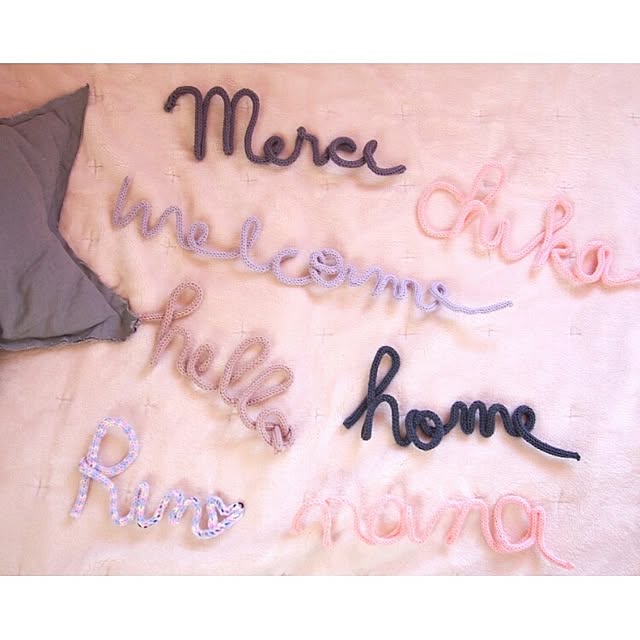 Merci
chika
welcome
hello
home
Rino
nana